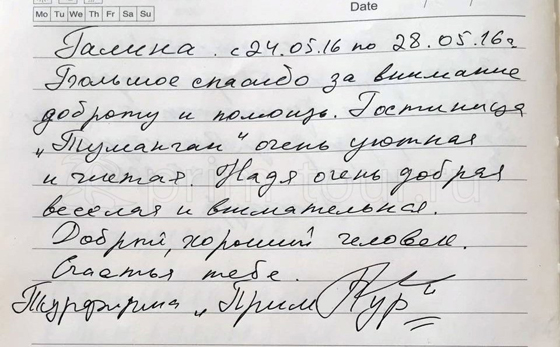 Date
Mo Tu We Th Fr Sa Su
Галина. с 24.05.16 по 28.05.16г
Большое спасибо за внимание
доброту и помощь. Гостиница
„Туманган“ очень уютная
и чистая. Надя очень добрая
веселая и внимательная.
Добрый, хороший человек.
Счастья тебе.
Турфирма „Прим Кур“